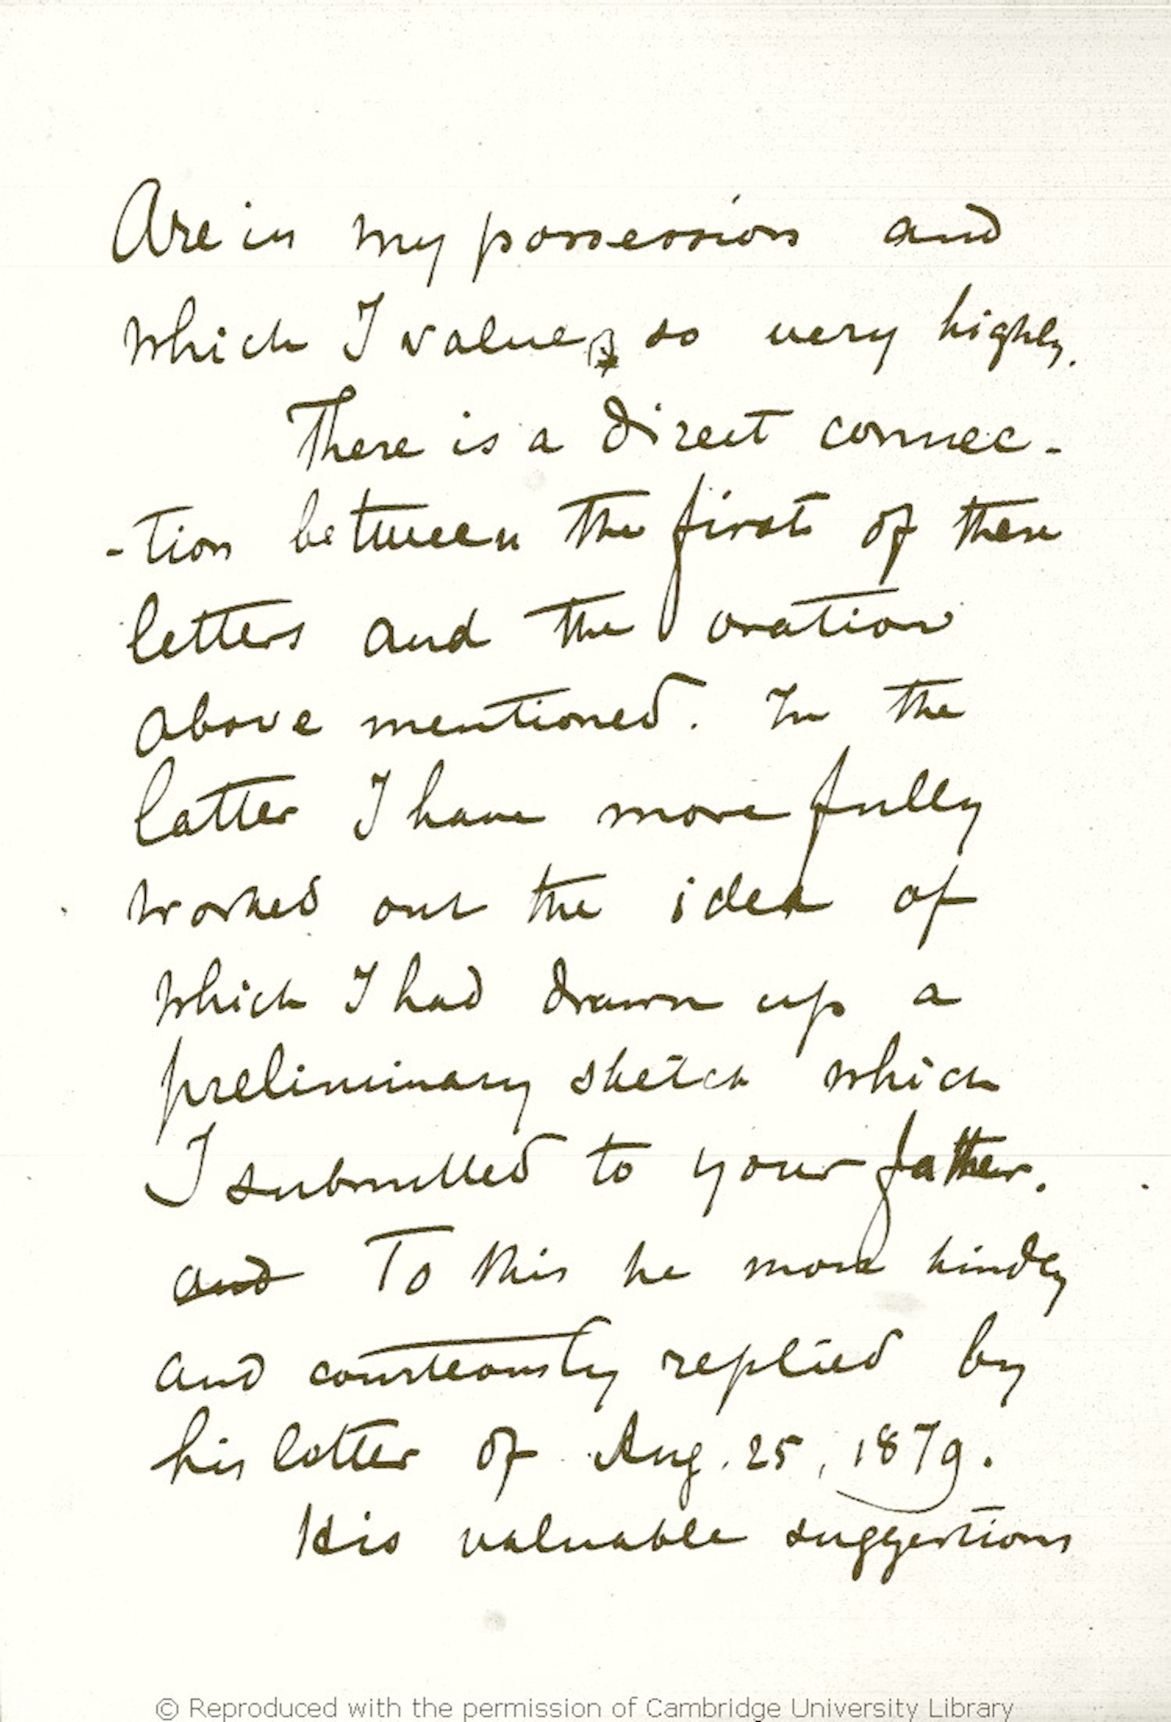 Are in my possession and
which I value so very highly.
There is a direct connec-
-tion between the first of these
letters and the oration
above mentioned. In the
latter I have more fully
worked out the idea of
which I had drawn up a
preliminary sketch which
I submitted to your father.
and To this he most kindly
and courteously replied by
his letter of Aug. 25, 1879.
His valuable suggestions
© Reproduced with the permission of Cambridge University Library